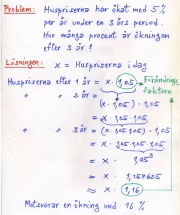 Problem: Huspriserna har ökat med 5 %
per år under en 3 års period.
Hur många procent är ökningen
efter 3 år?
Lösningen: x = Huspriserna idag
Huspriserna efter 1 år = x · 1,05 Förändrings-
faktorn
" " 2 år = (x · 1,05) · 1,05
= x · 1,05 · 1,05
" " 3 år = (x · 1,05 · 1,05) · 1,05
= x · 1,05 · 1,05 · 1,05
= x · 1,05³
= x · 1,157625
≈ x · 1,16
Motsvarar en ökning med 16 %